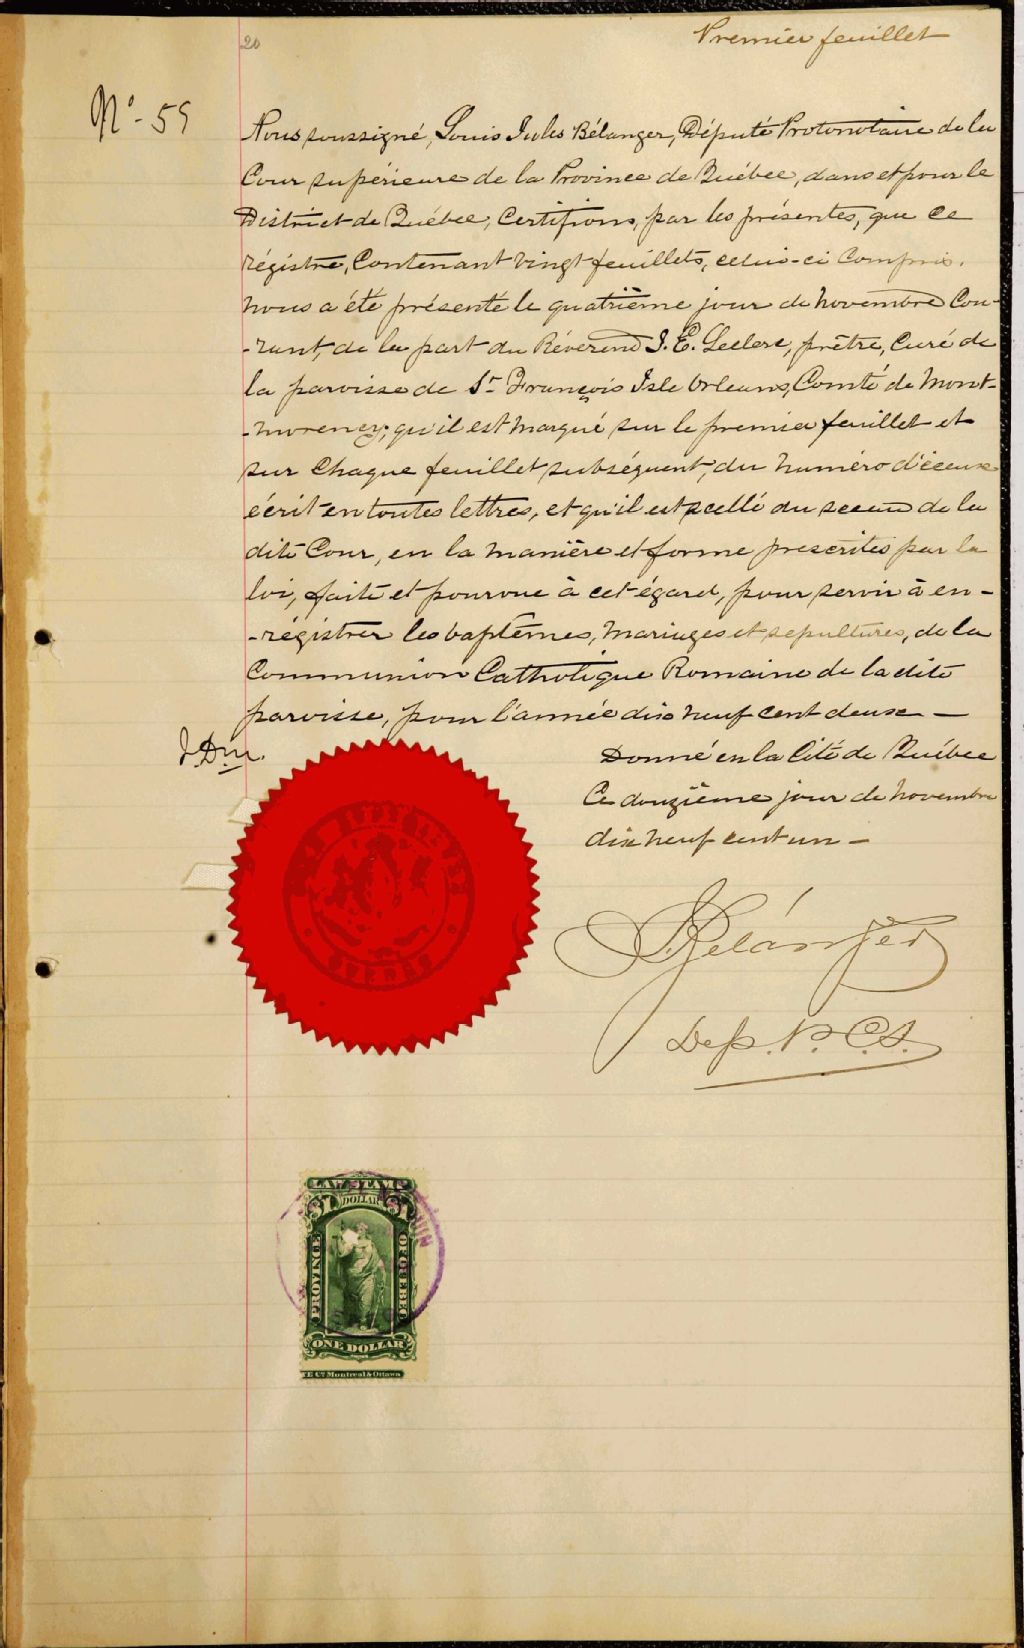 20
Premier feuillet
No - 59
Nous soussigné, Louis Jules Bélanger, Député Protonotaire de la
Cour supérieure de la Province de Québec, dans et pour le
District de Québec, Certifions, par les présentes, que ce
régistre, Contenant vingt feuillets, celui-ci Compris,
nous a été présenté le quatrième jour de novembre Cou-
-rant, de la part du Révérend J. E. Leclerc, prêtre, Curé de
la paroisse de St. François Isle Orleans, Comté de Mont-
-morency; qu'il est marqué sur le premier feuillet et
sur Chaque feuillet subséquent, du numéro d'iceux
écrit en toutes lettres, et qu'il est scellé du sceau de la
dite Cour, en la manière et forme prescrites par la
loi, faite et pourvue à cet égard, pour servir à en-
-régistrer les baptêmes, mariages et sepultures, de la
Communion Catholique Romaine de la dite
paroisse, pour l'année dix neuf cent deux —
J. Dm.
Donné en la Cité de Québec
Ce douzième jour de novembre
dix neuf cent un —
QUEBEC
Bélanger
Dep. P. C. S.
LAW STAMP
$1 DOLLAR $1
PROVINCE OF QUEBEC
ONE DOLLAR
TE Co Montreal & Ottawa